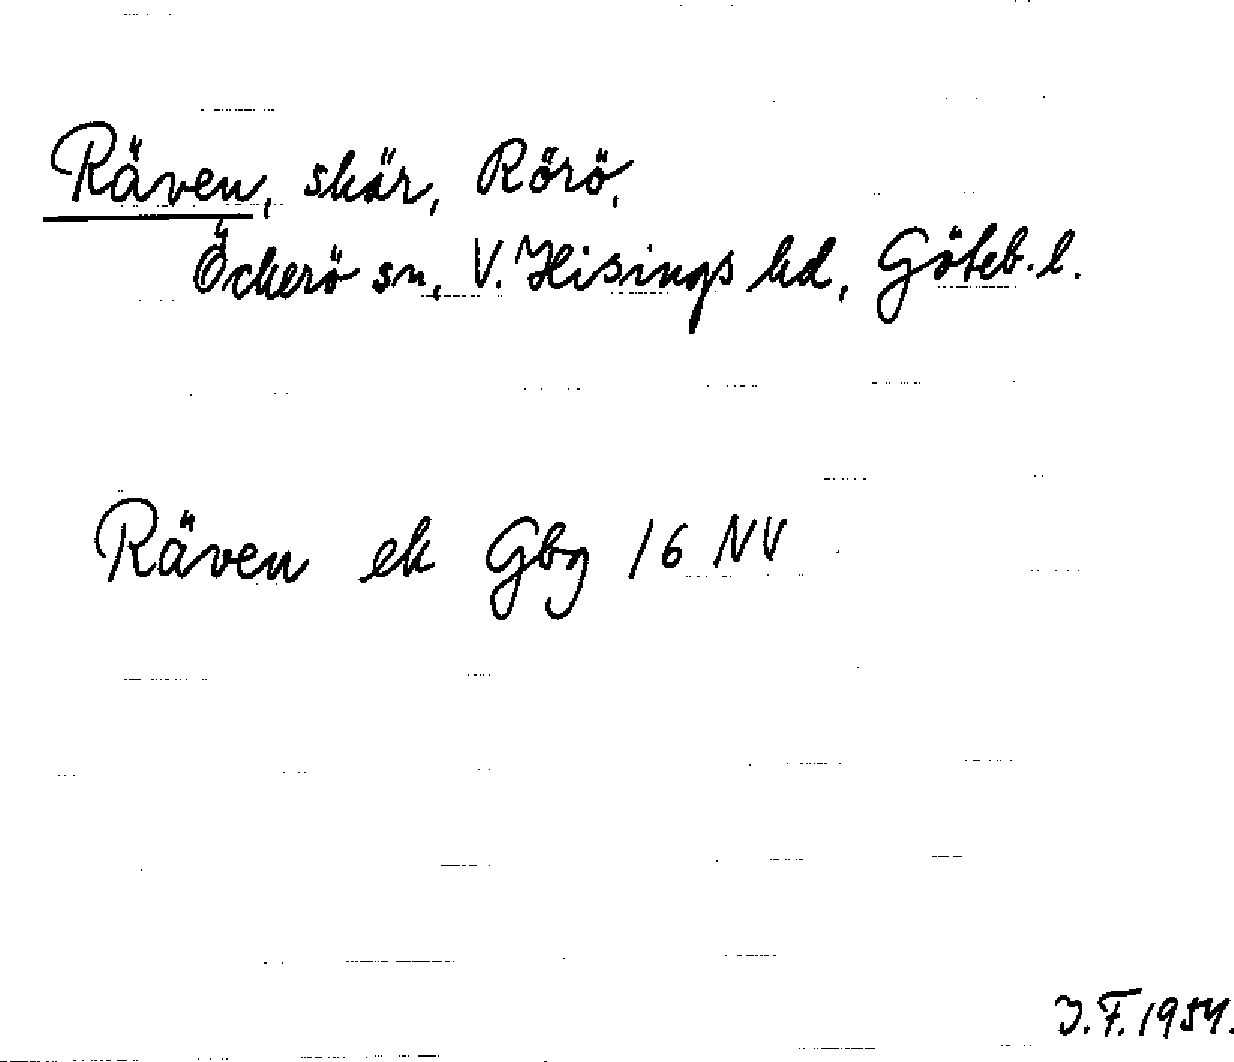 Räven, skär, Rörö,
Öckerö sn, V. Hisings hd, Göteb. l.
Räven ek Gbg 16 NV
J.F. 1954.